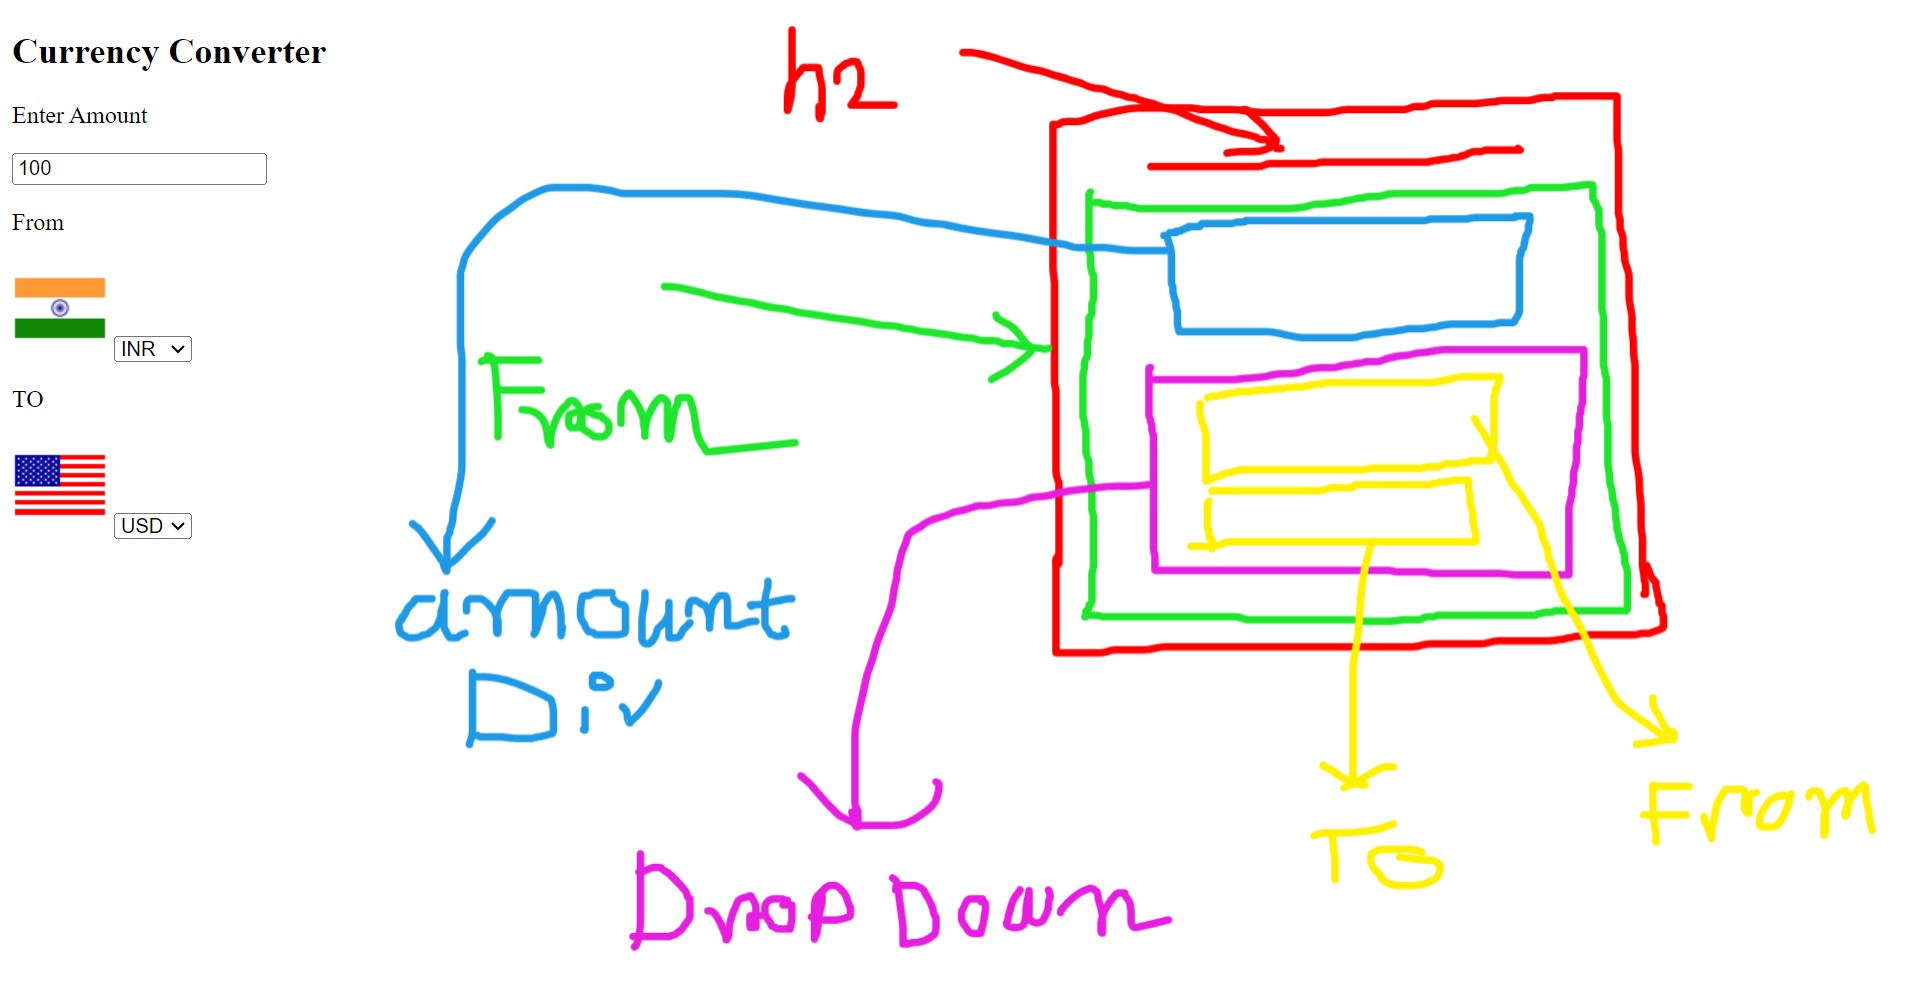 Currency Converter
Enter Amount
100
From
INR
TO
USD
h2
From
amount
Div
DropDown
To
From